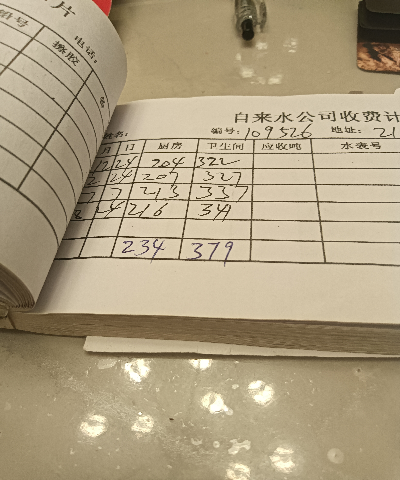 片
电话:
箱号
换胶
自来水公司收费计
姓名: 编号: 109526 地址: 21
月 日 厨房 卫生间 应收吨 水表号
12 24 204 322
2 24 207 327
7 7 213 337
24 216 341
234 379